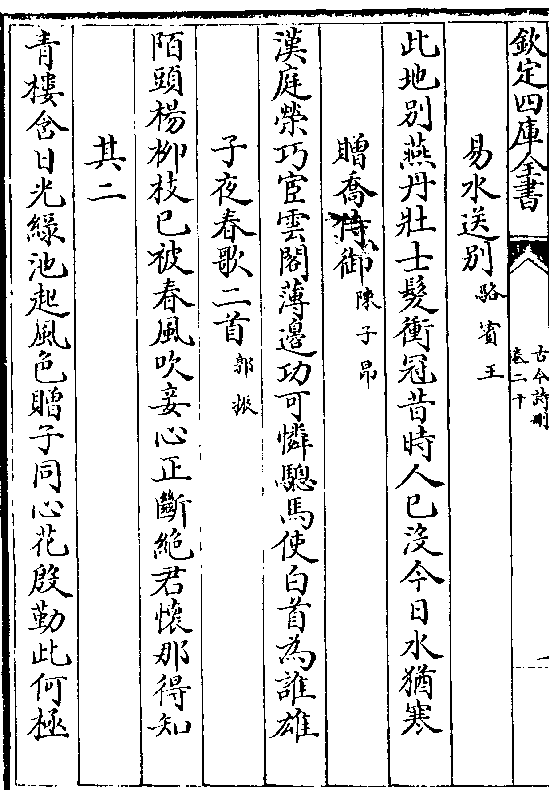 欽定四庫全書
古今詩刪
卷二十
易水送別 駱賓王
此地別燕丹壯士髮衝冠昔時人已沒今日水猶寒
贈喬侍御 陳子昂
漢庭榮巧宦雲閣薄邊功可憐驄馬使白首為誰雄
子夜春歌二首 郭振
陌頭楊柳枝已被春風吹妾心正斷絶君懷那得知
其二
青樓含日光綠池起風色贈子同心花殷勤此何極